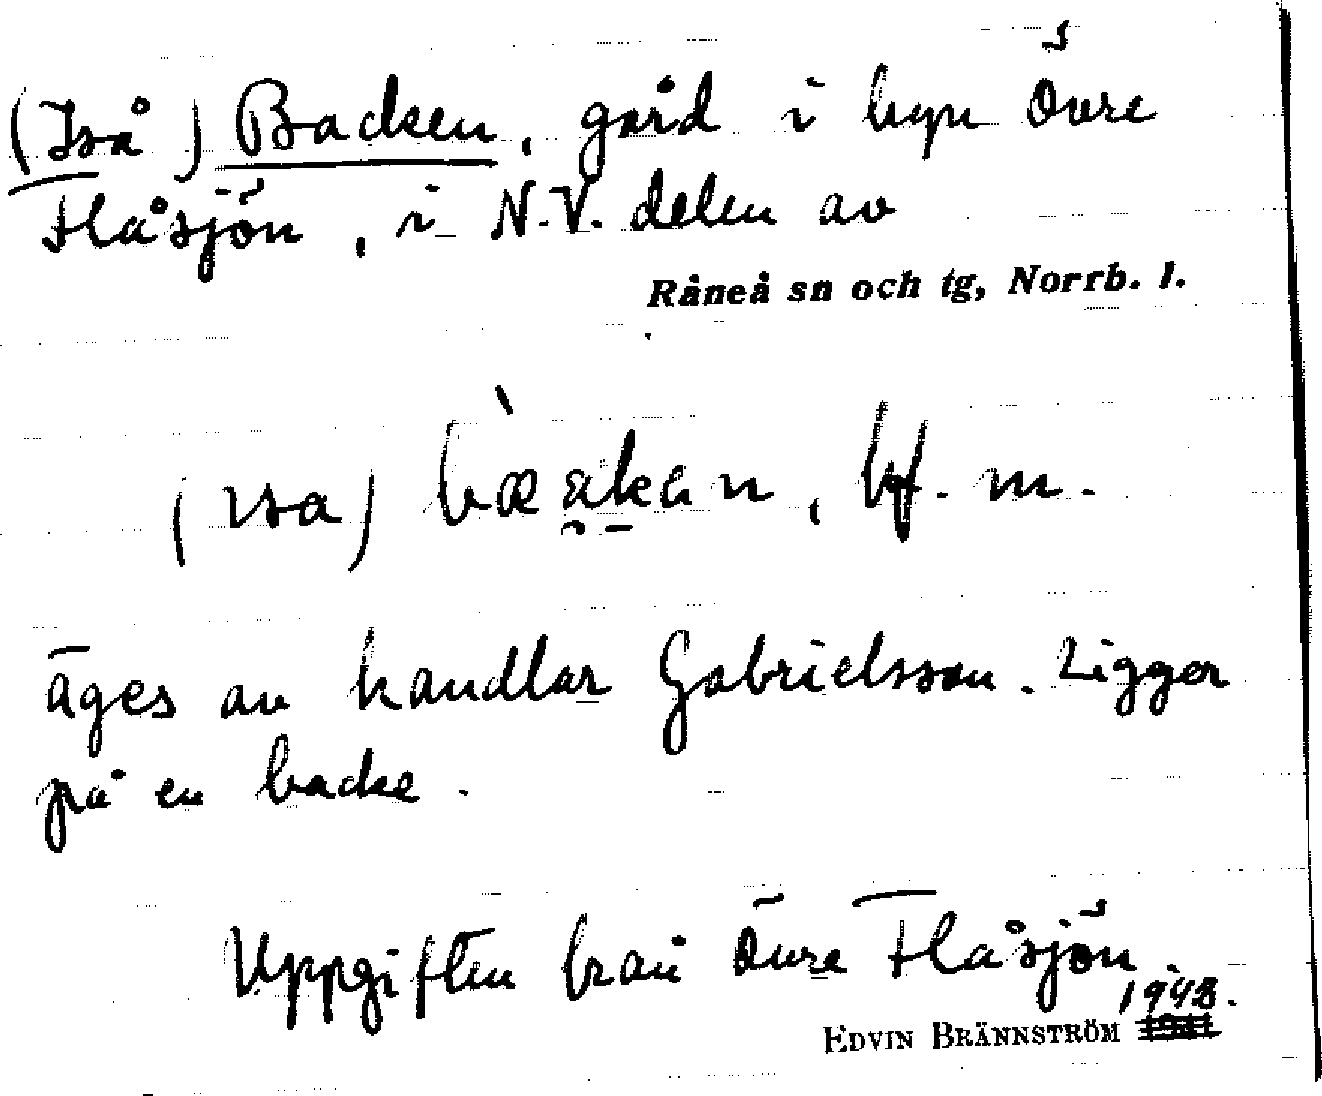 (Iså) Backen, gård i byn Övre
Flåsjön, i N.V. delen av
Råneå sn och tg, Norrb. l.
bf. m.
äges av handlar Gabrielsson. Ligger
på en backe.
Uppgiften från Övre Flåsjön
1943.
EDVIN BRÄNNSTRÖM